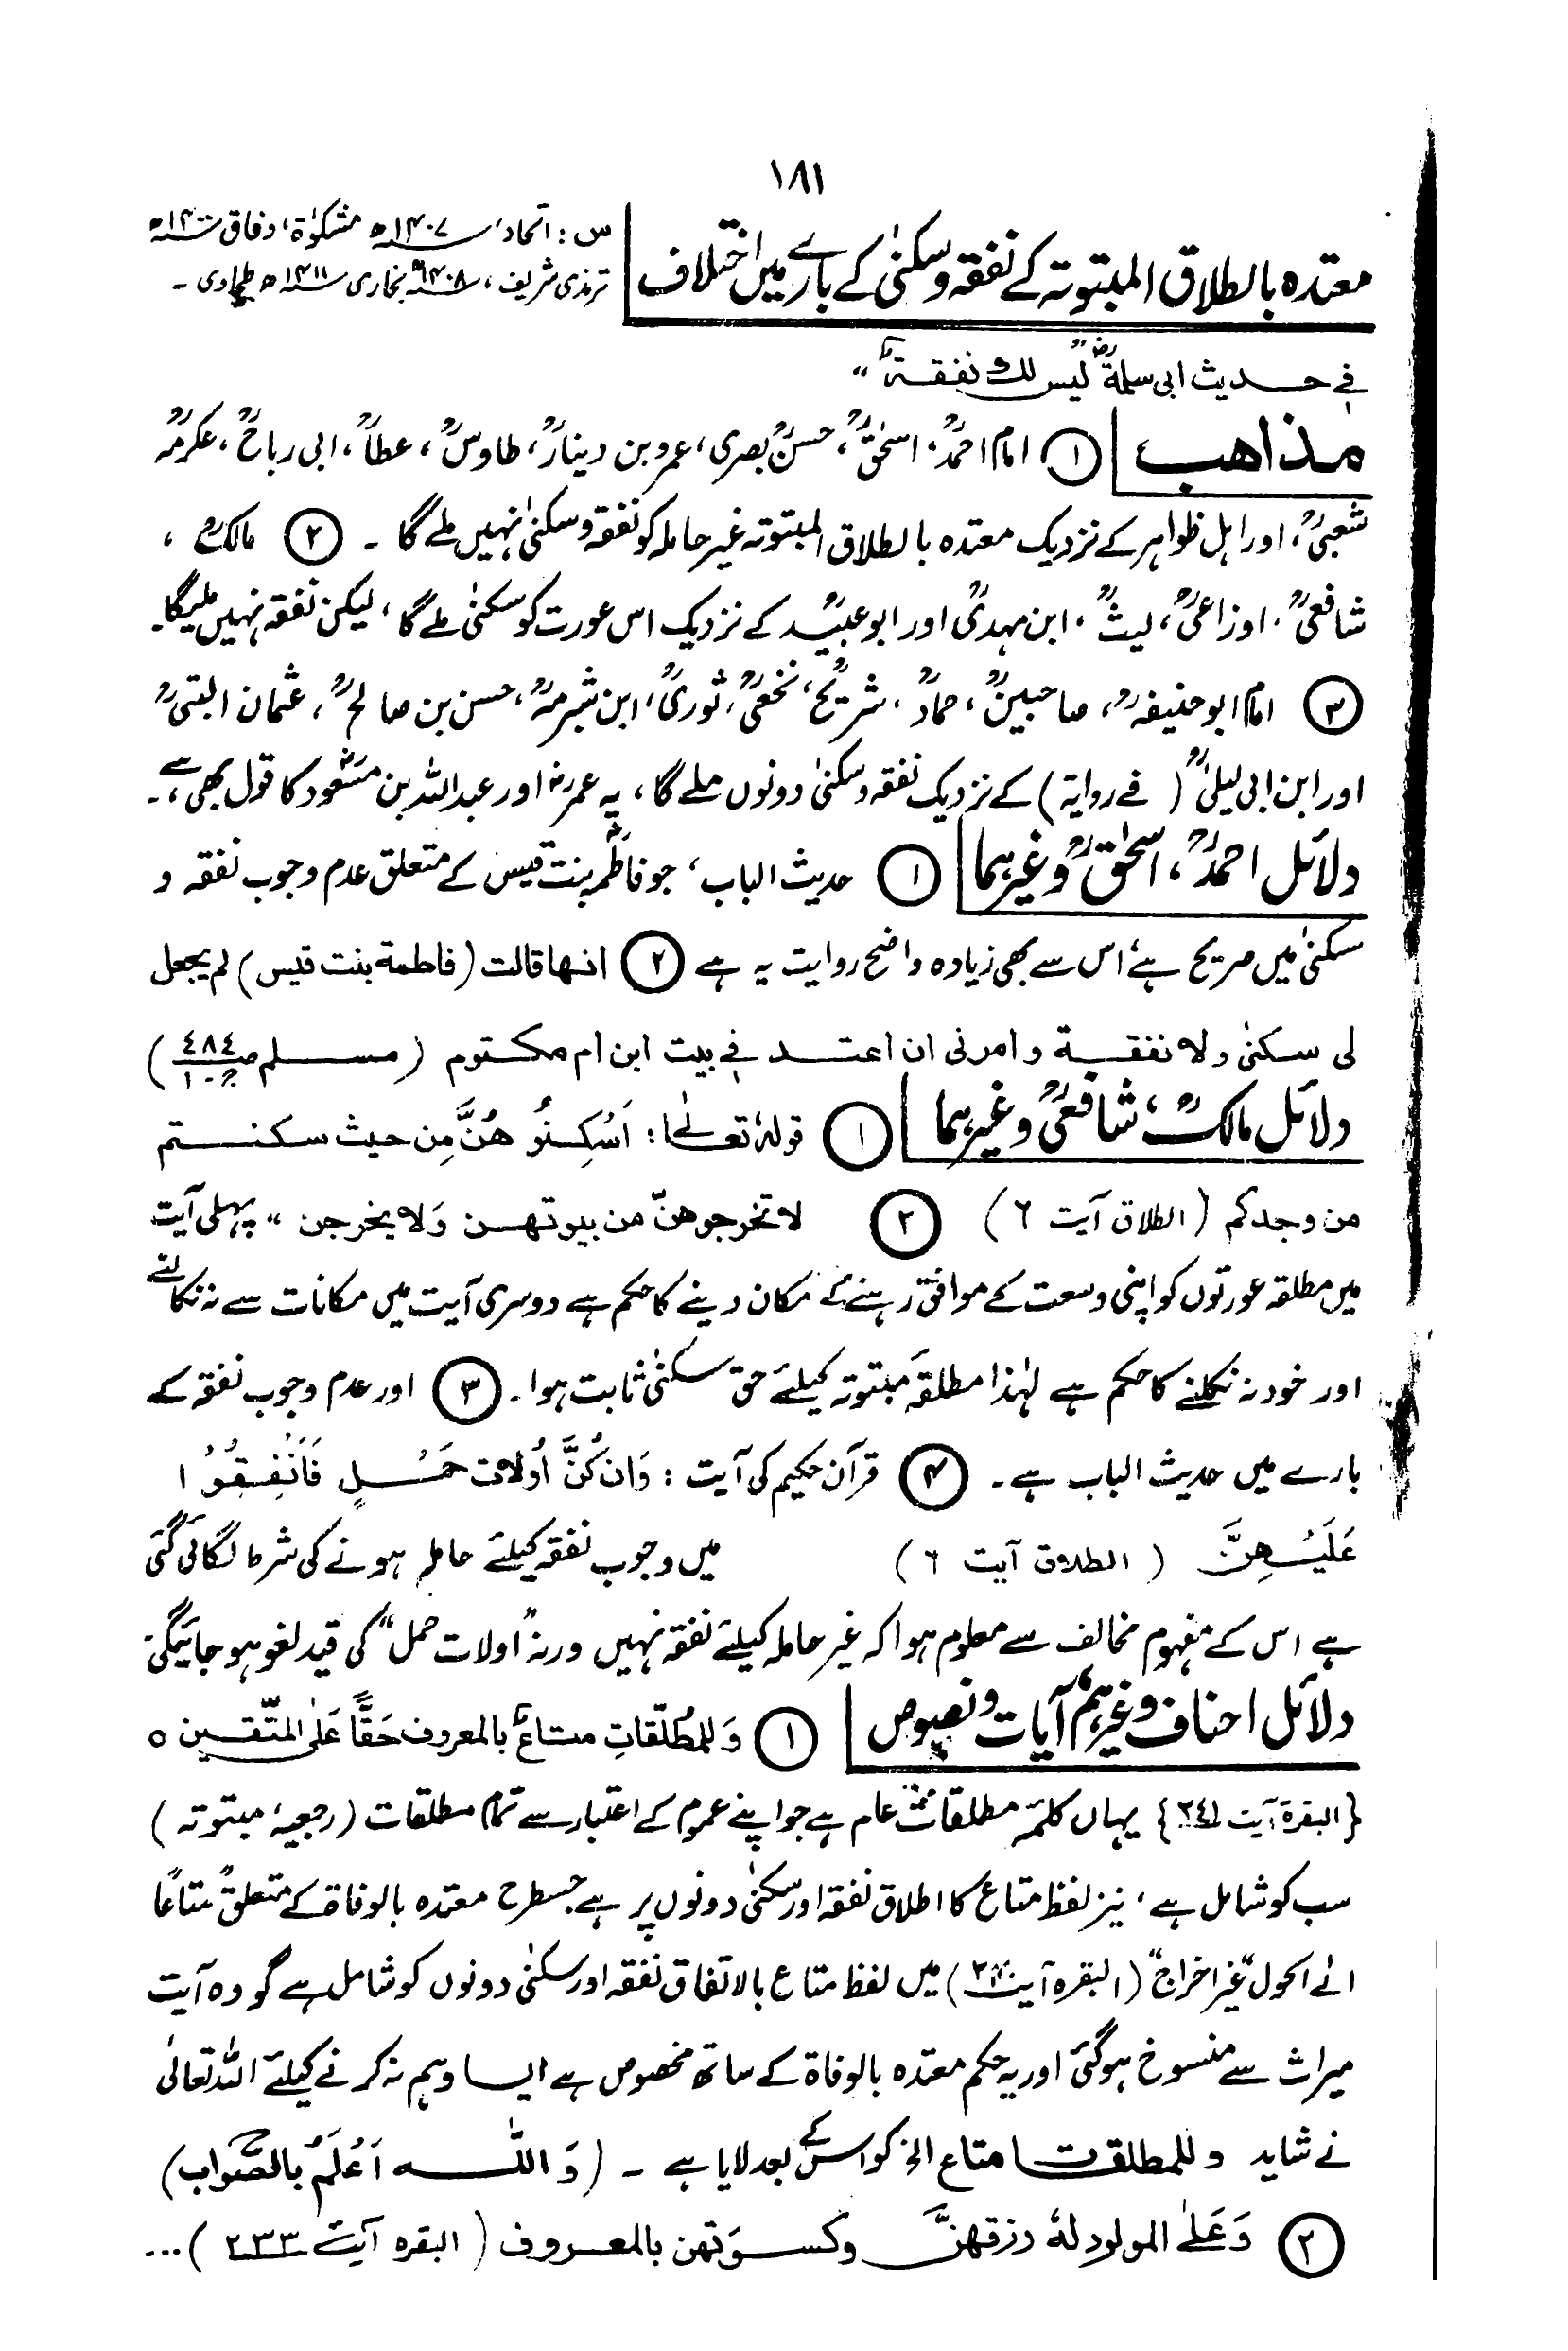 ۱۸۱
معتدہ بالطلاق المبتوتہ کے نفقہ وسکنیٰ کے بارے میں اختلاف
س : اتحاد، ۱۴۰۷ھ مشکوٰۃ، وفاق
ترمذی شریف، ۱۴۰۸ھ بخاری ۱۴۱۱ھ طحاوی ۔
فے حدیث ابی سلمۃؓ "لیس لك نفقۃ"
مذاهب ① امام احمدؒ، اسحٰقؒ، حسنؒ بصری، عمرو بن دینارؒ، طاوسؒ، عطاؒ، ابی رباحؒ، عکرمہؒ
شعبیؒ، اور اہل ظواہر کے نزدیک معتدہ بالطلاق المبتوتہ غیر حاملہ کو نفقہ وسکنیٰ نہیں ملے گا ۔ ② مالکؒ ،
شافعیؒ، اوزاعیؒ، لیثؒ، ابن مہدیؒ اور ابو عبیدؒ کے نزدیک اس عورت کو سکنیٰ ملے گا ، لیکن نفقہ نہیں ملیگا۔
③ امام ابو حنیفہؒ، صاحبینؒ، حمادؒ، شریحؒ، نخعیؒ، ثوریؒ، ابن شبرمہؒ، حسن بن صالحؒ، عثمان البتیؒ
اور ابن ابی لیلیٰؒ (فے روایۃ) کے نزدیک نفقہ وسکنیٰ دونوں ملے گا ، یہ عمرؓ اور عبداللہ بن مسعودؓ کا قول بھی ہے ۔
دلائل احمدؒ، اسحٰقؒ وغیرہما ① حدیث الباب ، جو فاطمہؓ بنت قیس کے متعلق عدم وجوب نفقہ و
سکنیٰ میں صریح ہے، اس سے بھی زیادہ واضح روایت یہ ہے ② انھا قالت (فاطمۃ بنت قیس) لم یجعل
لی سکنیٰ ولا نفقۃ وامرنی ان اعتد فے بیت ابن ام مکتوم (مسلم ص٤٨٤)
دلائل مالکؒ، شافعیؒ وغیرہما ① قولہٗ تعالےٰ : اَسْکِنُوْ هُنَّ مِن حیث سکنتم
من وجدکم (الطلاق آیت ٦) ② لا تخرجوهنّ من بیوتهن وَلا یخرجن " پہلی آیت
میں مطلقہ عورتوں کو اپنی وسعت کے موافق رہنے کے مکان دینے کا حکم ہے دوسری آیت میں مکانات سے نہ نکالنے
اور خود نہ نکلنے کا حکم ہے لہٰذا مطلقہ مبتوتہ کیلئے حق سکنیٰ ثابت ہوا ۔ ③ اور عدم وجوب نفقہ کے
بارے میں حدیث الباب ہے ۔ ④ قرآن حکیم کی آیت : وَان کُنَّ اُولات حَمْلٍ فَاَنْفِقُوْا
عَلَیْهِنَّ (الطلاق آیت ٦) میں وجوب نفقہ کیلئے حاملہ ہونے کی شرط لگائی گئی
ہے اس کے مفہوم مخالف سے معلوم ہوا کہ غیر حاملہ کیلئے نفقہ نہیں ورنہ "اولات حمل" کی قید لغو ہو جائیگی۔
دلائل احناف وغیرہم آیات ونصوص ① وَللمُطلّقاتِ متاعٌ بالمعروف حَقًّا عَلی المتّقین ○
{البقرۃ آیت ٢٤١} یہاں کلمۂ مطلقات عام ہے جو اپنے عموم کے اعتبار سے تمام مطلقات (رجعیہ، مبتوتہ)
سب کو شامل ہے ، نیز لفظ متاع کا اطلاق نفقہ اور سکنیٰ دونوں پر ہے جسطرح معتدہ بالوفاۃ کے متعلق "متاعًا
الے الحول غیر اخراج" (البقرہ آیت) میں لفظ متاع بالاتفاق نفقہ اور سکنیٰ دونوں کو شامل ہے گو وہ آیت
میراث سے منسوخ ہوگئی اور یہ حکم معتدہ بالوفاۃ کے ساتھ مخصوص ہے ایسا وہم نہ کرنے کیلئے اللہ تعالیٰ
نے شاید وللمطلقت متاع الخ کو اس کے بعد لایا ہے ۔ (وَاللّٰه اَعْلَمُ بالصَّواب)
② وَعَلے المولود لهٗ رزقهنّ وکسوَتهن بالمعروف (البقرہ آیت ٢٣٣) ...